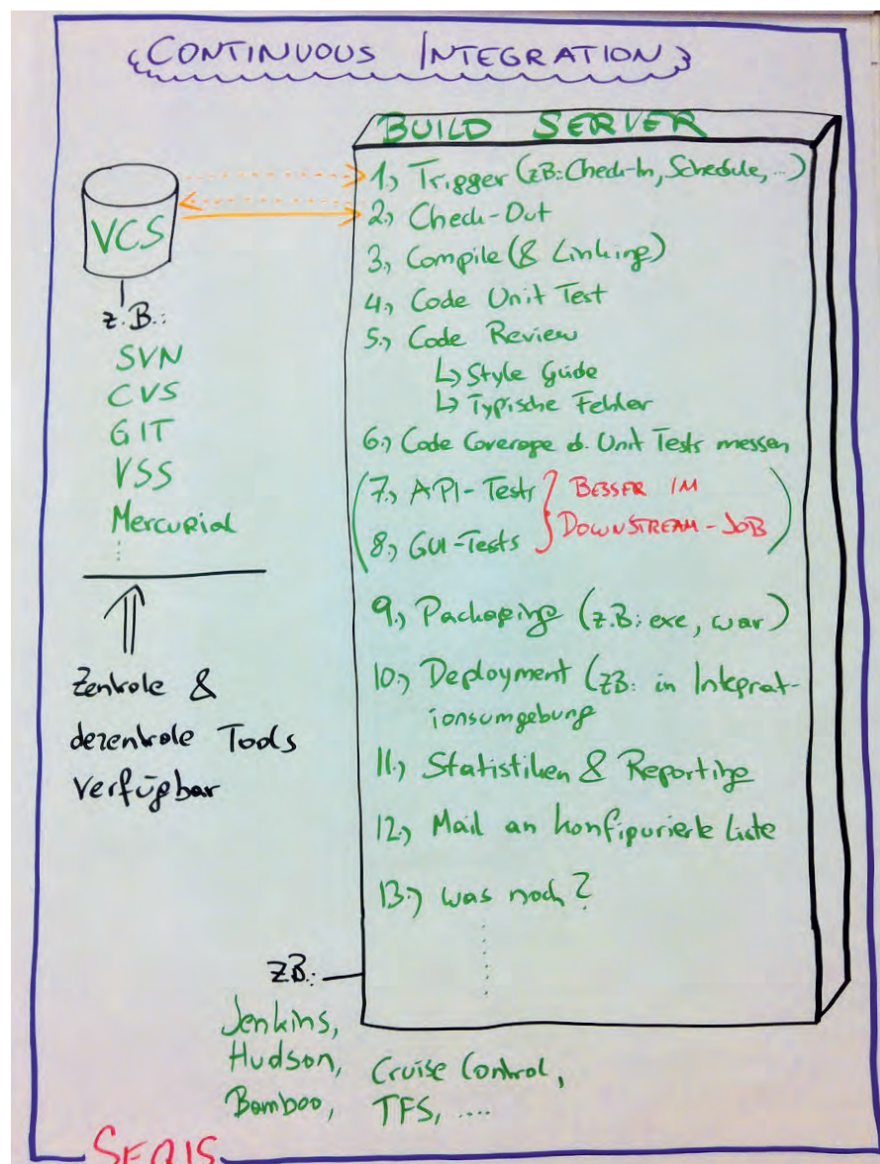 CONTINUOUS INTEGRATION
BUILD SERVER
VCS
z.B.:
SVN
CVS
GIT
VSS
Mercurial
⋮
Zentrale &
dezentrale Tools
verfügbar
1.) Trigger (zB: Check-In, Schedule, ...)
2.) Check-Out
3.) Compile (& Linking)
4.) Code Unit Test
5.) Code Review
↳ Style Guide
↳ Typische Fehler
6.) Code Coverage d. Unit Tests messen
(7.) API-Tests } BESSER IM
8.) GUI-Tests } DOWNSTREAM-JOB)
9.) Packaging (z.B: exe, war)
10.) Deployment (zB: in Integrat-
ionsumgebung
11.) Statistiken & Reporting
12.) Mail an konfigurierte Liste
13.) was noch?
⋮
zB.:
Jenkins,
Hudson, Cruise Control,
Bamboo, TFS, ....
SEQIS